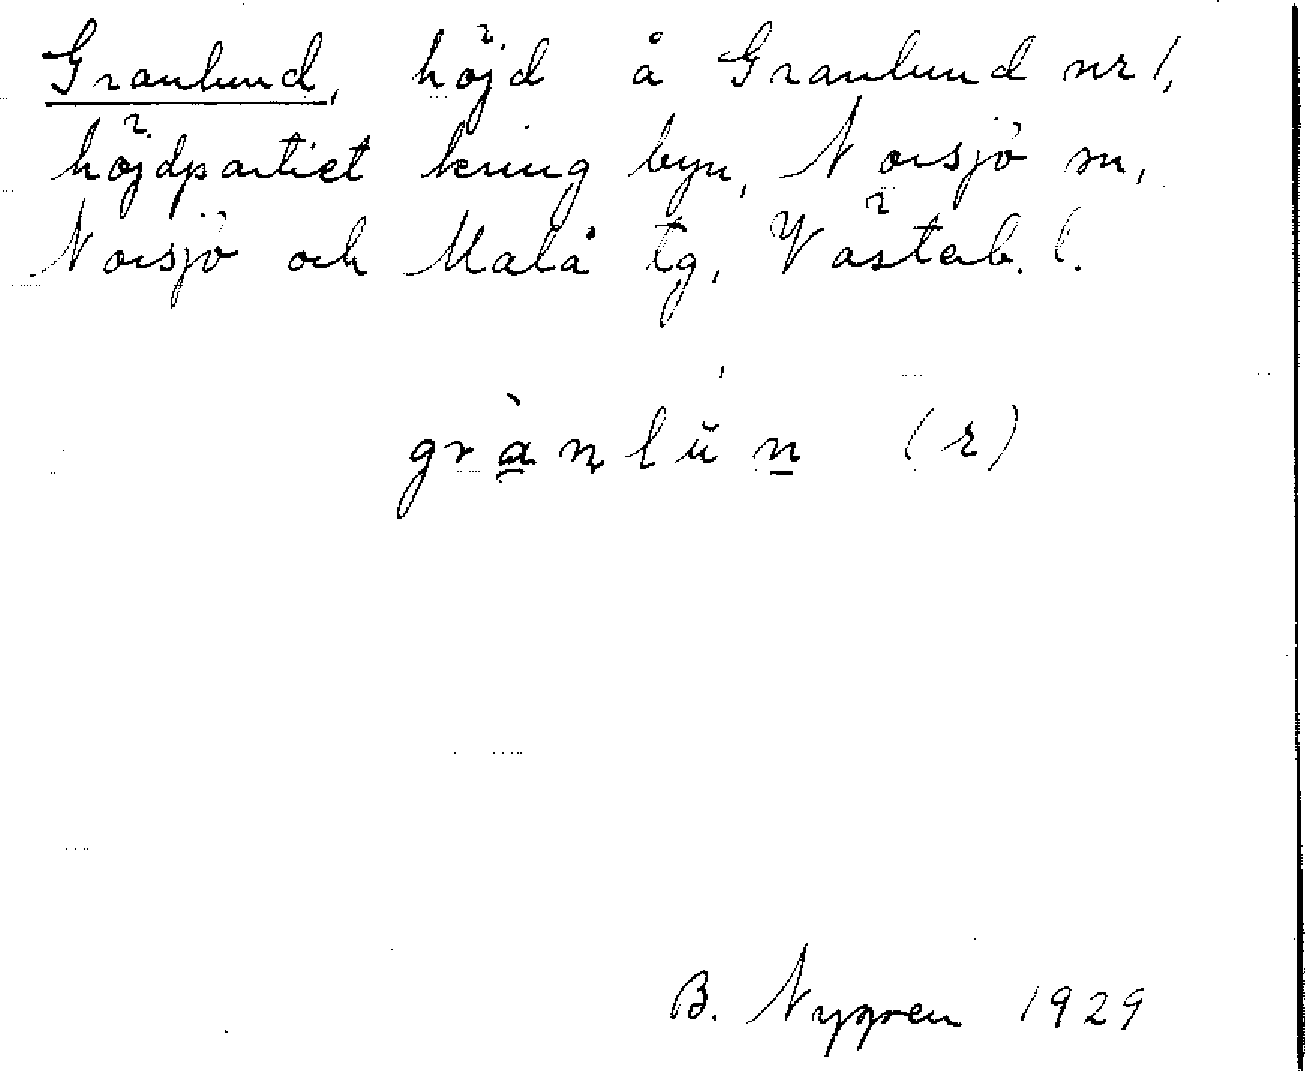 Granlund, höjd å Granlund nr 1,
höjdpartiet kring byn, Norsjö sn,
Norsjö och Malå tg, Västerb. l.
grànlŭn (r)
B. Nygren 1929